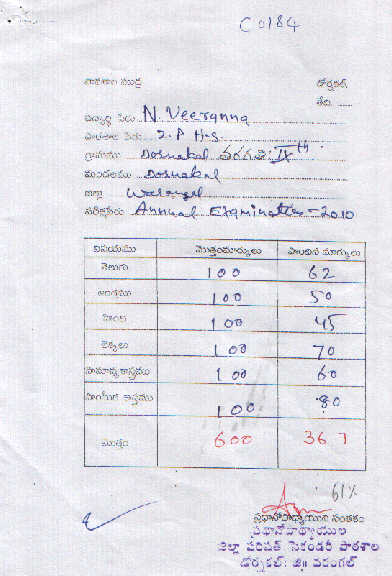 C0184
పాఠశాల ముద్ర డోర్నకల్
తేది. .....
విద్యార్థి పేరు N. Veeranna
పాఠశాల పేరు Z.P H.S
గ్రామము Dornakal తరగతి: IXth
మండలము Dornakal
జిల్లా Warangal
పరీక్షపేరు Annual Examination-2010
విషయము మొత్తంమార్కులు పొందిన మార్కులు
తెలుగు 100 62
ఆంగ్లము 100 50
హింది 100 45
లెక్కలు 100 70
సామాన్యశాస్త్రము 100 60
సాంఘీక శాస్త్రము 100 80
మొత్తం 600 367
61%
ప్రధానోపాధ్యాయుని సంతకం
ప్రధానోపాధ్యాయుల
జిల్లా పరిషత్ సెకండరీ పాఠశాల
డోర్నకల్: జిల్లా వరంగల్